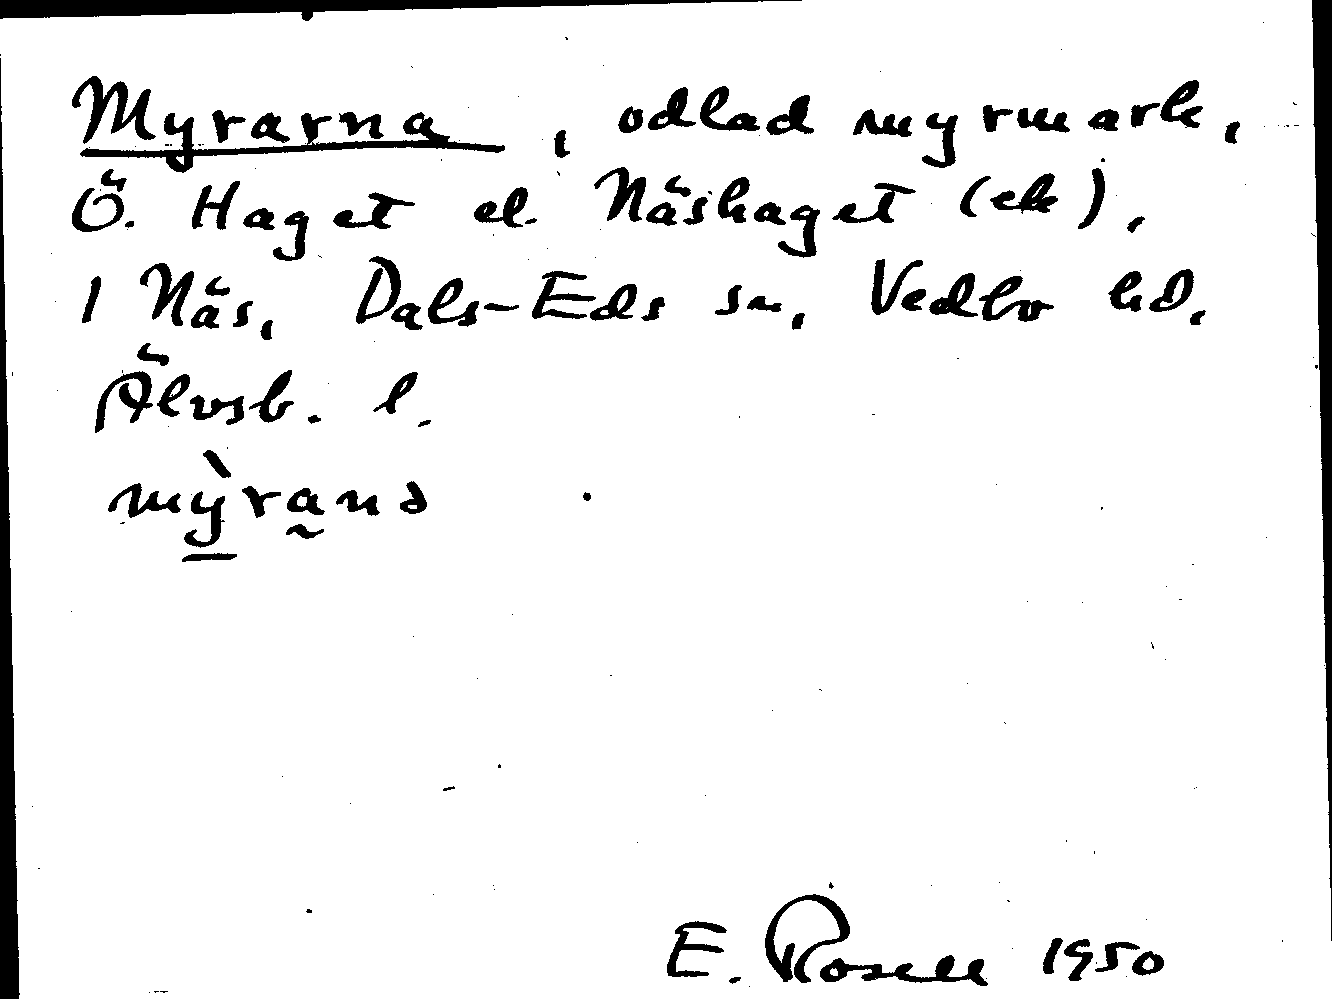 Myrarna, odlad myrmark,
Ö. Haget el. Näshaget (ek),
1 Näs, Dals-Eds sn, Vedbo hd,
Älvsb. l.
mỳra̰nə
E. Rosell 1950